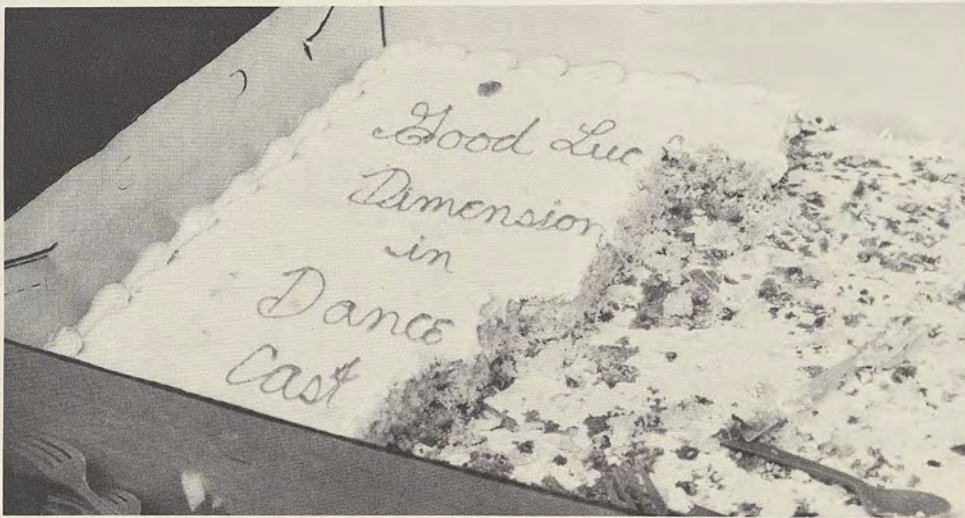 Good Luc
Dimension
in
Dance
Cast